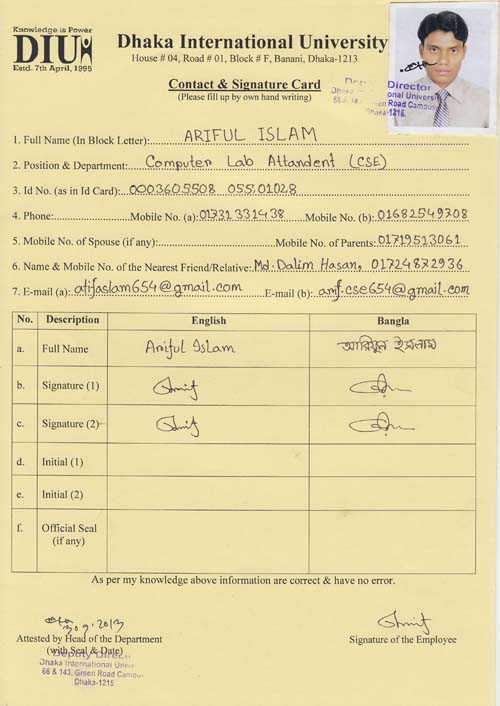 Knowledge is Power
DIU
Estd. 7th April, 1995
Dhaka International University
House # 04, Road # 01, Block # F, Banani, Dhaka-1213
Contact & Signature Card
(Please fill up by own hand writing)
Director
Dhaka International University
66 & 143, Green Road Campus
Dhaka-1215.
1. Full Name (In Block Letter): ARIFUL ISLAM
2. Position & Department: Computer Lab Attandent (CSE)
3. Id No. (as in Id Card): 0003605508 055.01028
4. Phone: Mobile No. (a): 01731331438 Mobile No. (b): 01682549708
5. Mobile No. of Spouse (if any): Mobile No. of Parents: 01719513061
6. Name & Mobile No. of the Nearest Friend/Relative: Md. Dalim Hasan, 01724872936
7. E-mail (a): atifaslam654@gmail.com E-mail (b): arif.cse654@gmail.com
No. Description English Bangla
a. Full Name Ariful Islam আরিফুল ইসলাম
b. Signature (1)
c. Signature (2)
d. Initial (1)
e. Initial (2)
f. Official Seal
(if any)
As per my knowledge above information are correct & have no error.
30.9.2013
Attested by Head of the Department Signature of the Employee
(with Seal & Date)
Deputy Director
Dhaka International University
66 & 143, Green Road Campus
Dhaka-1215